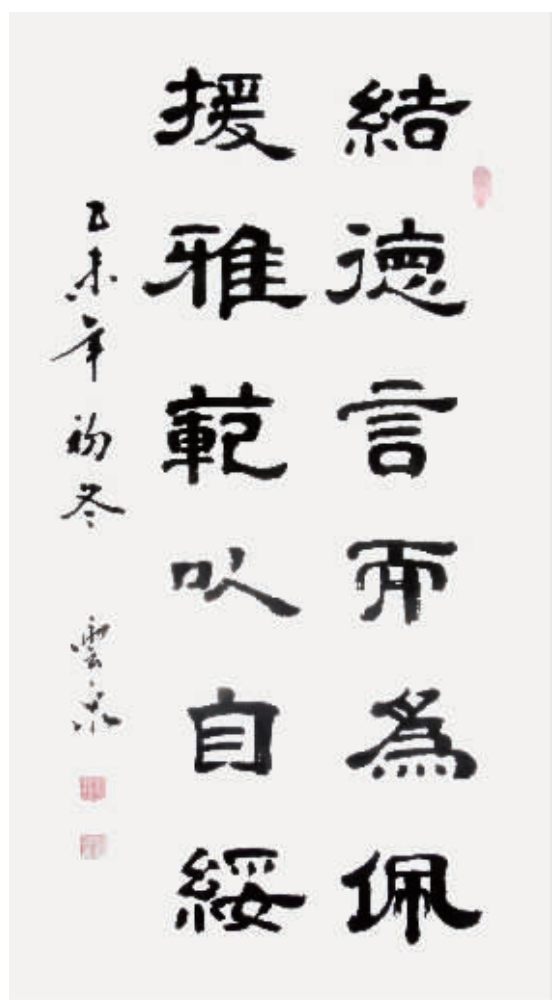 結德言而為佩
援雅範以自綏
乙未年初冬 雲泉